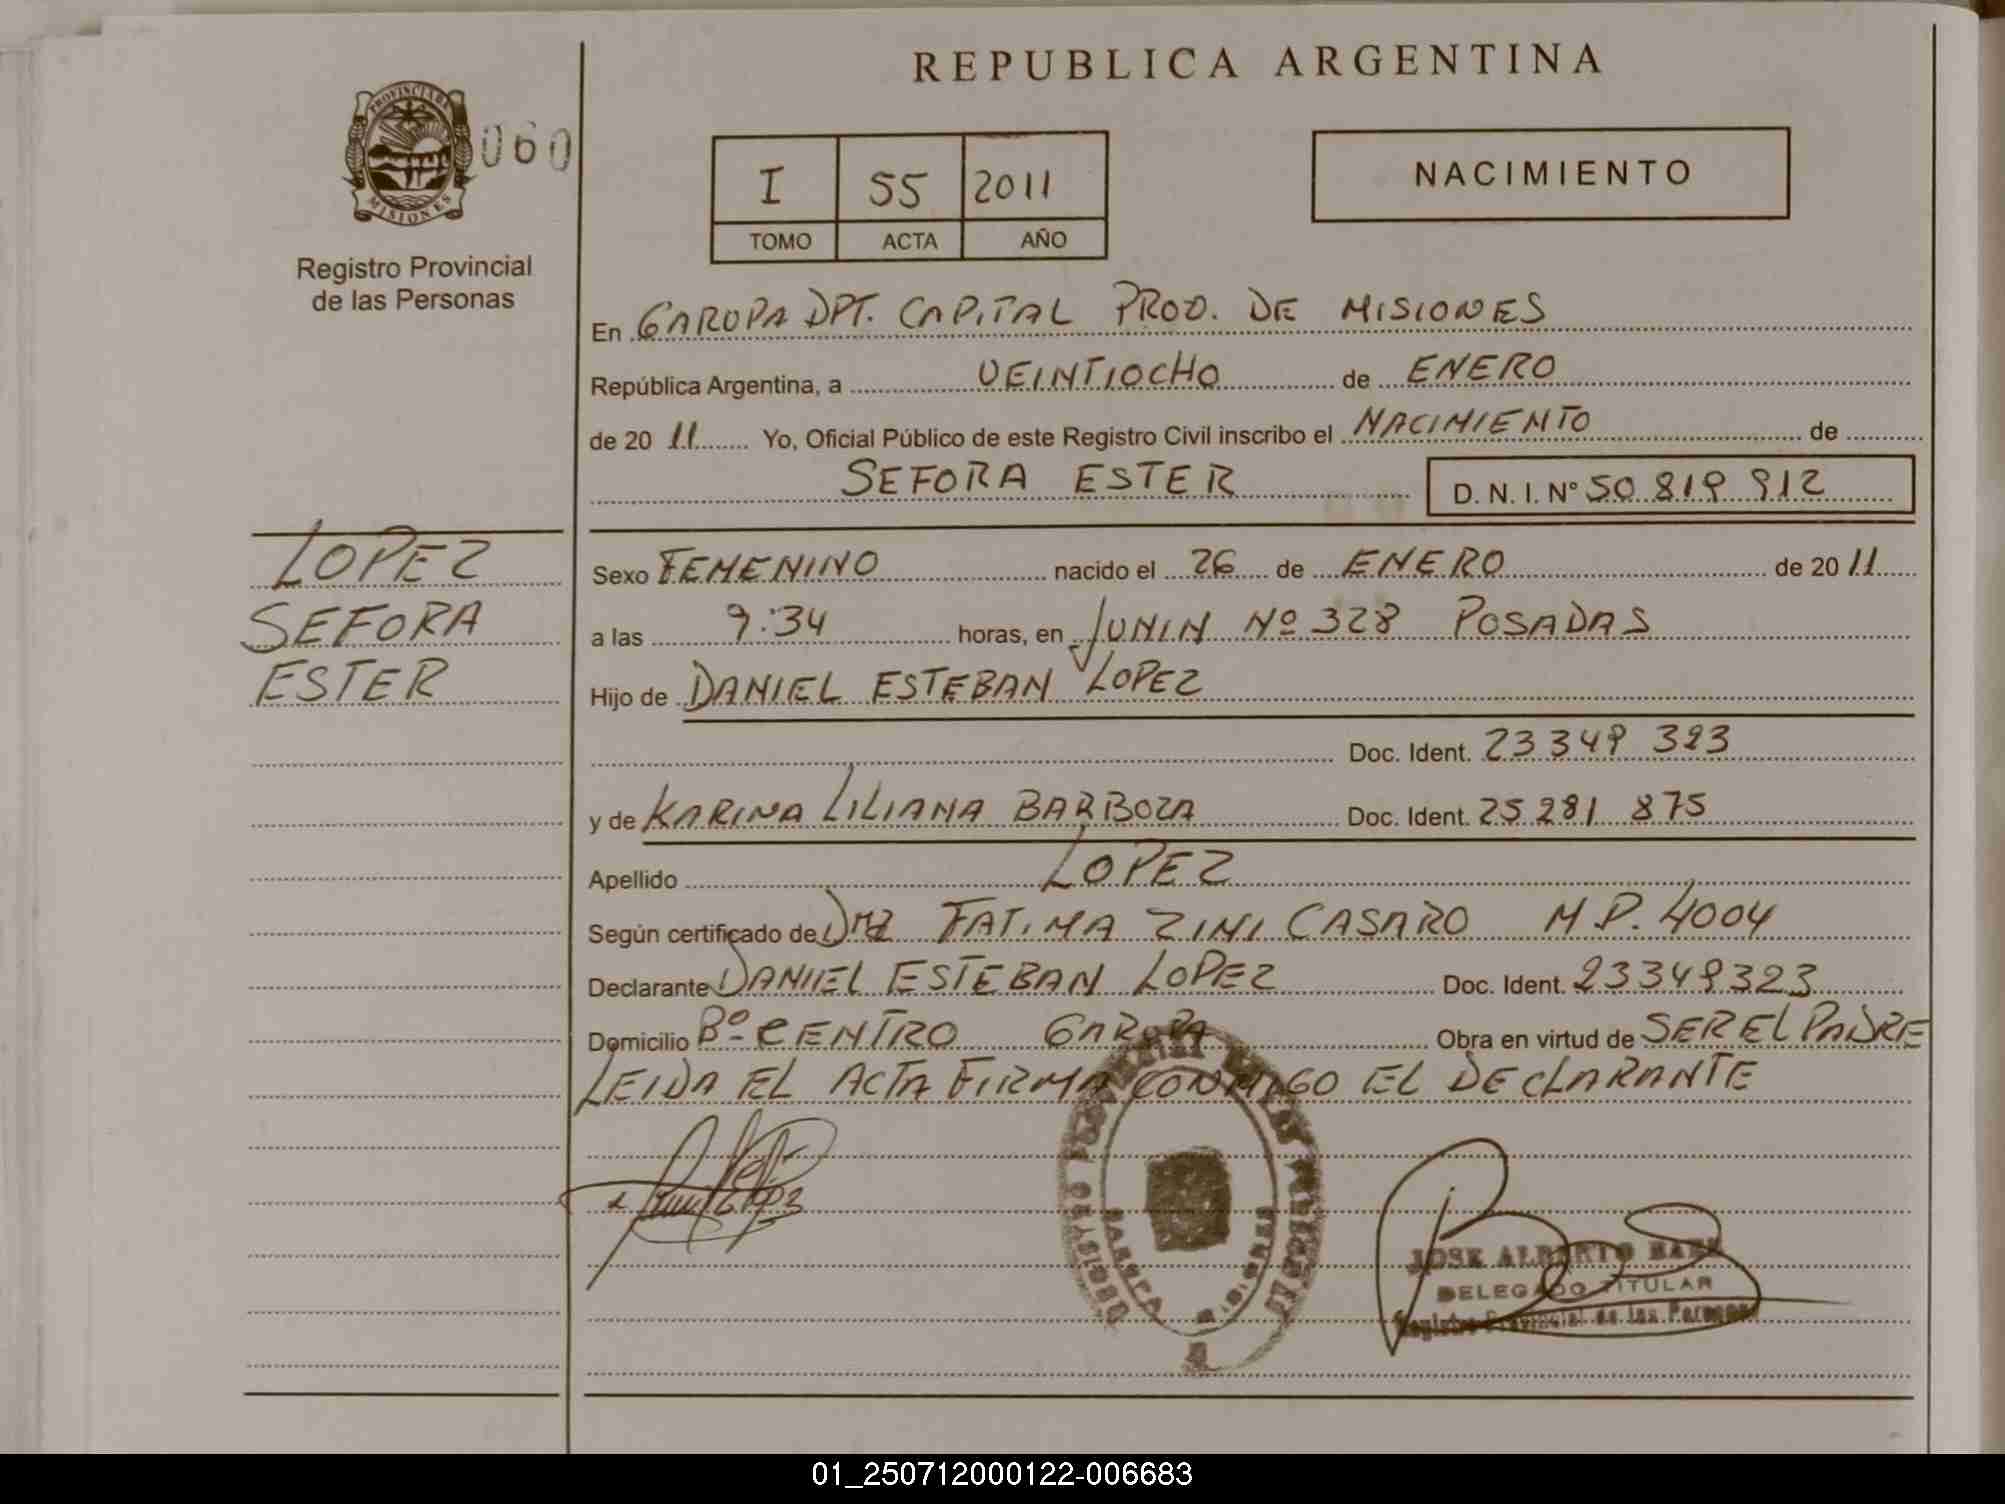 REPUBLICA ARGENTINA
PROVINCIA DE
MISIONES
060
Registro Provincial
de las Personas
I 55 2011
TOMO ACTA AÑO
NACIMIENTO
En GARUPA DPT. CAPITAL PROV. DE MISIONES
República Argentina, a VEINTIOCHO de ENERO
de 20 11 Yo, Oficial Público de este Registro Civil inscribo el NACIMIENTO de
SEFORA ESTER D. N. I. Nº 50 819 912
LOPEZ
SEFORA
ESTER
Sexo FEMENINO nacido el 26 de ENERO de 20 11
a las 9:34 horas, en JUNIN Nº 328 POSADAS
Hijo de DANIEL ESTEBAN LOPEZ
Doc. Ident. 23 349 323
y de KARINA LILIANA BARBOZA Doc. Ident. 25 281 875
Apellido LOPEZ
Según certificado de DRA FATIMA ZINI CASARO M P. 4004
Declarante DANIEL ESTEBAN LOPEZ Doc. Ident. 23349323
Domicilio Bº CENTRO GARUPA Obra en virtud de SER EL PADRE
LEIDA EL ACTA FIRMA CONMIGO EL DECLARANTE
JOSE ALBERTO BAEZ
DELEGADO TITULAR
Registro Provincial de las Personas
01_250712000122-006683